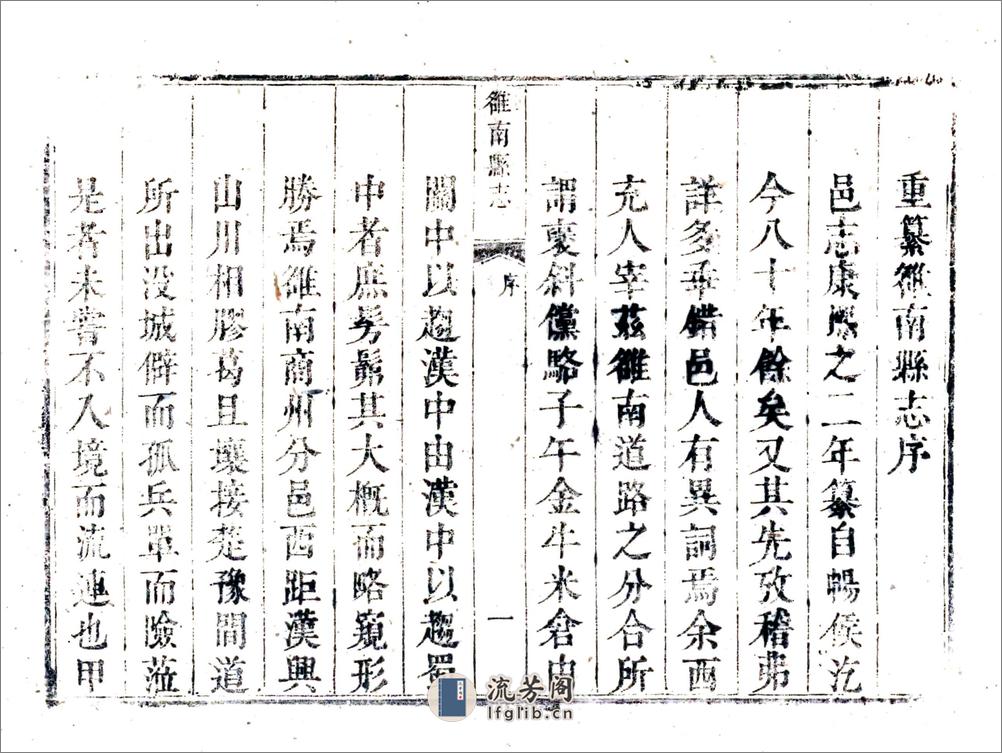 重纂雒南縣志序
邑志康熙之二年纂自暢侯汔
今八十年餘矣又其先攷稽弗
詳多乖錯邑人有異詞焉余西
充人宰茲雒南道路之分合所
謂褒斜儻駱子午金牛米倉由
雒南縣志
序
一
關中以趨漢中由漢中以趨蜀
中者庶髣髴其大概而略窺形
勝焉雒南商州分邑西距漢興
山川相膠葛且壤接楚豫間道
所出没城僻而孤兵單而險蒞
是者未嘗不入境而流連也甲
流芳阁
lfglib.cn